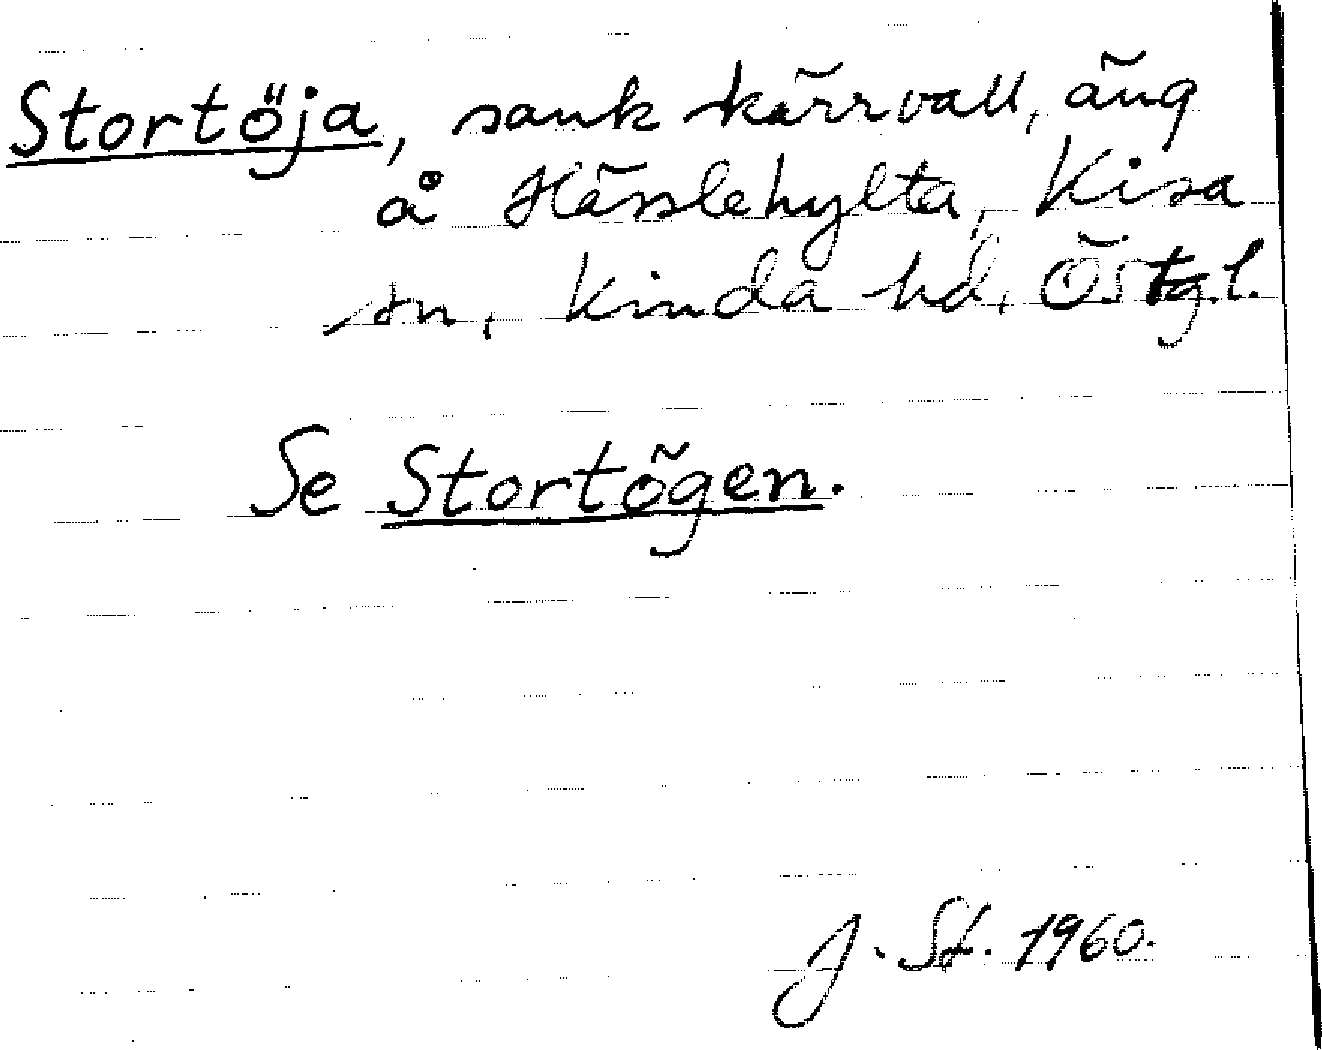 Stortöja, sank kärrvall, äng
å Hässlehylta, Kisa
sn, Kinda hd, Östg.l.
Se Stortögen.
J. St. 1960.